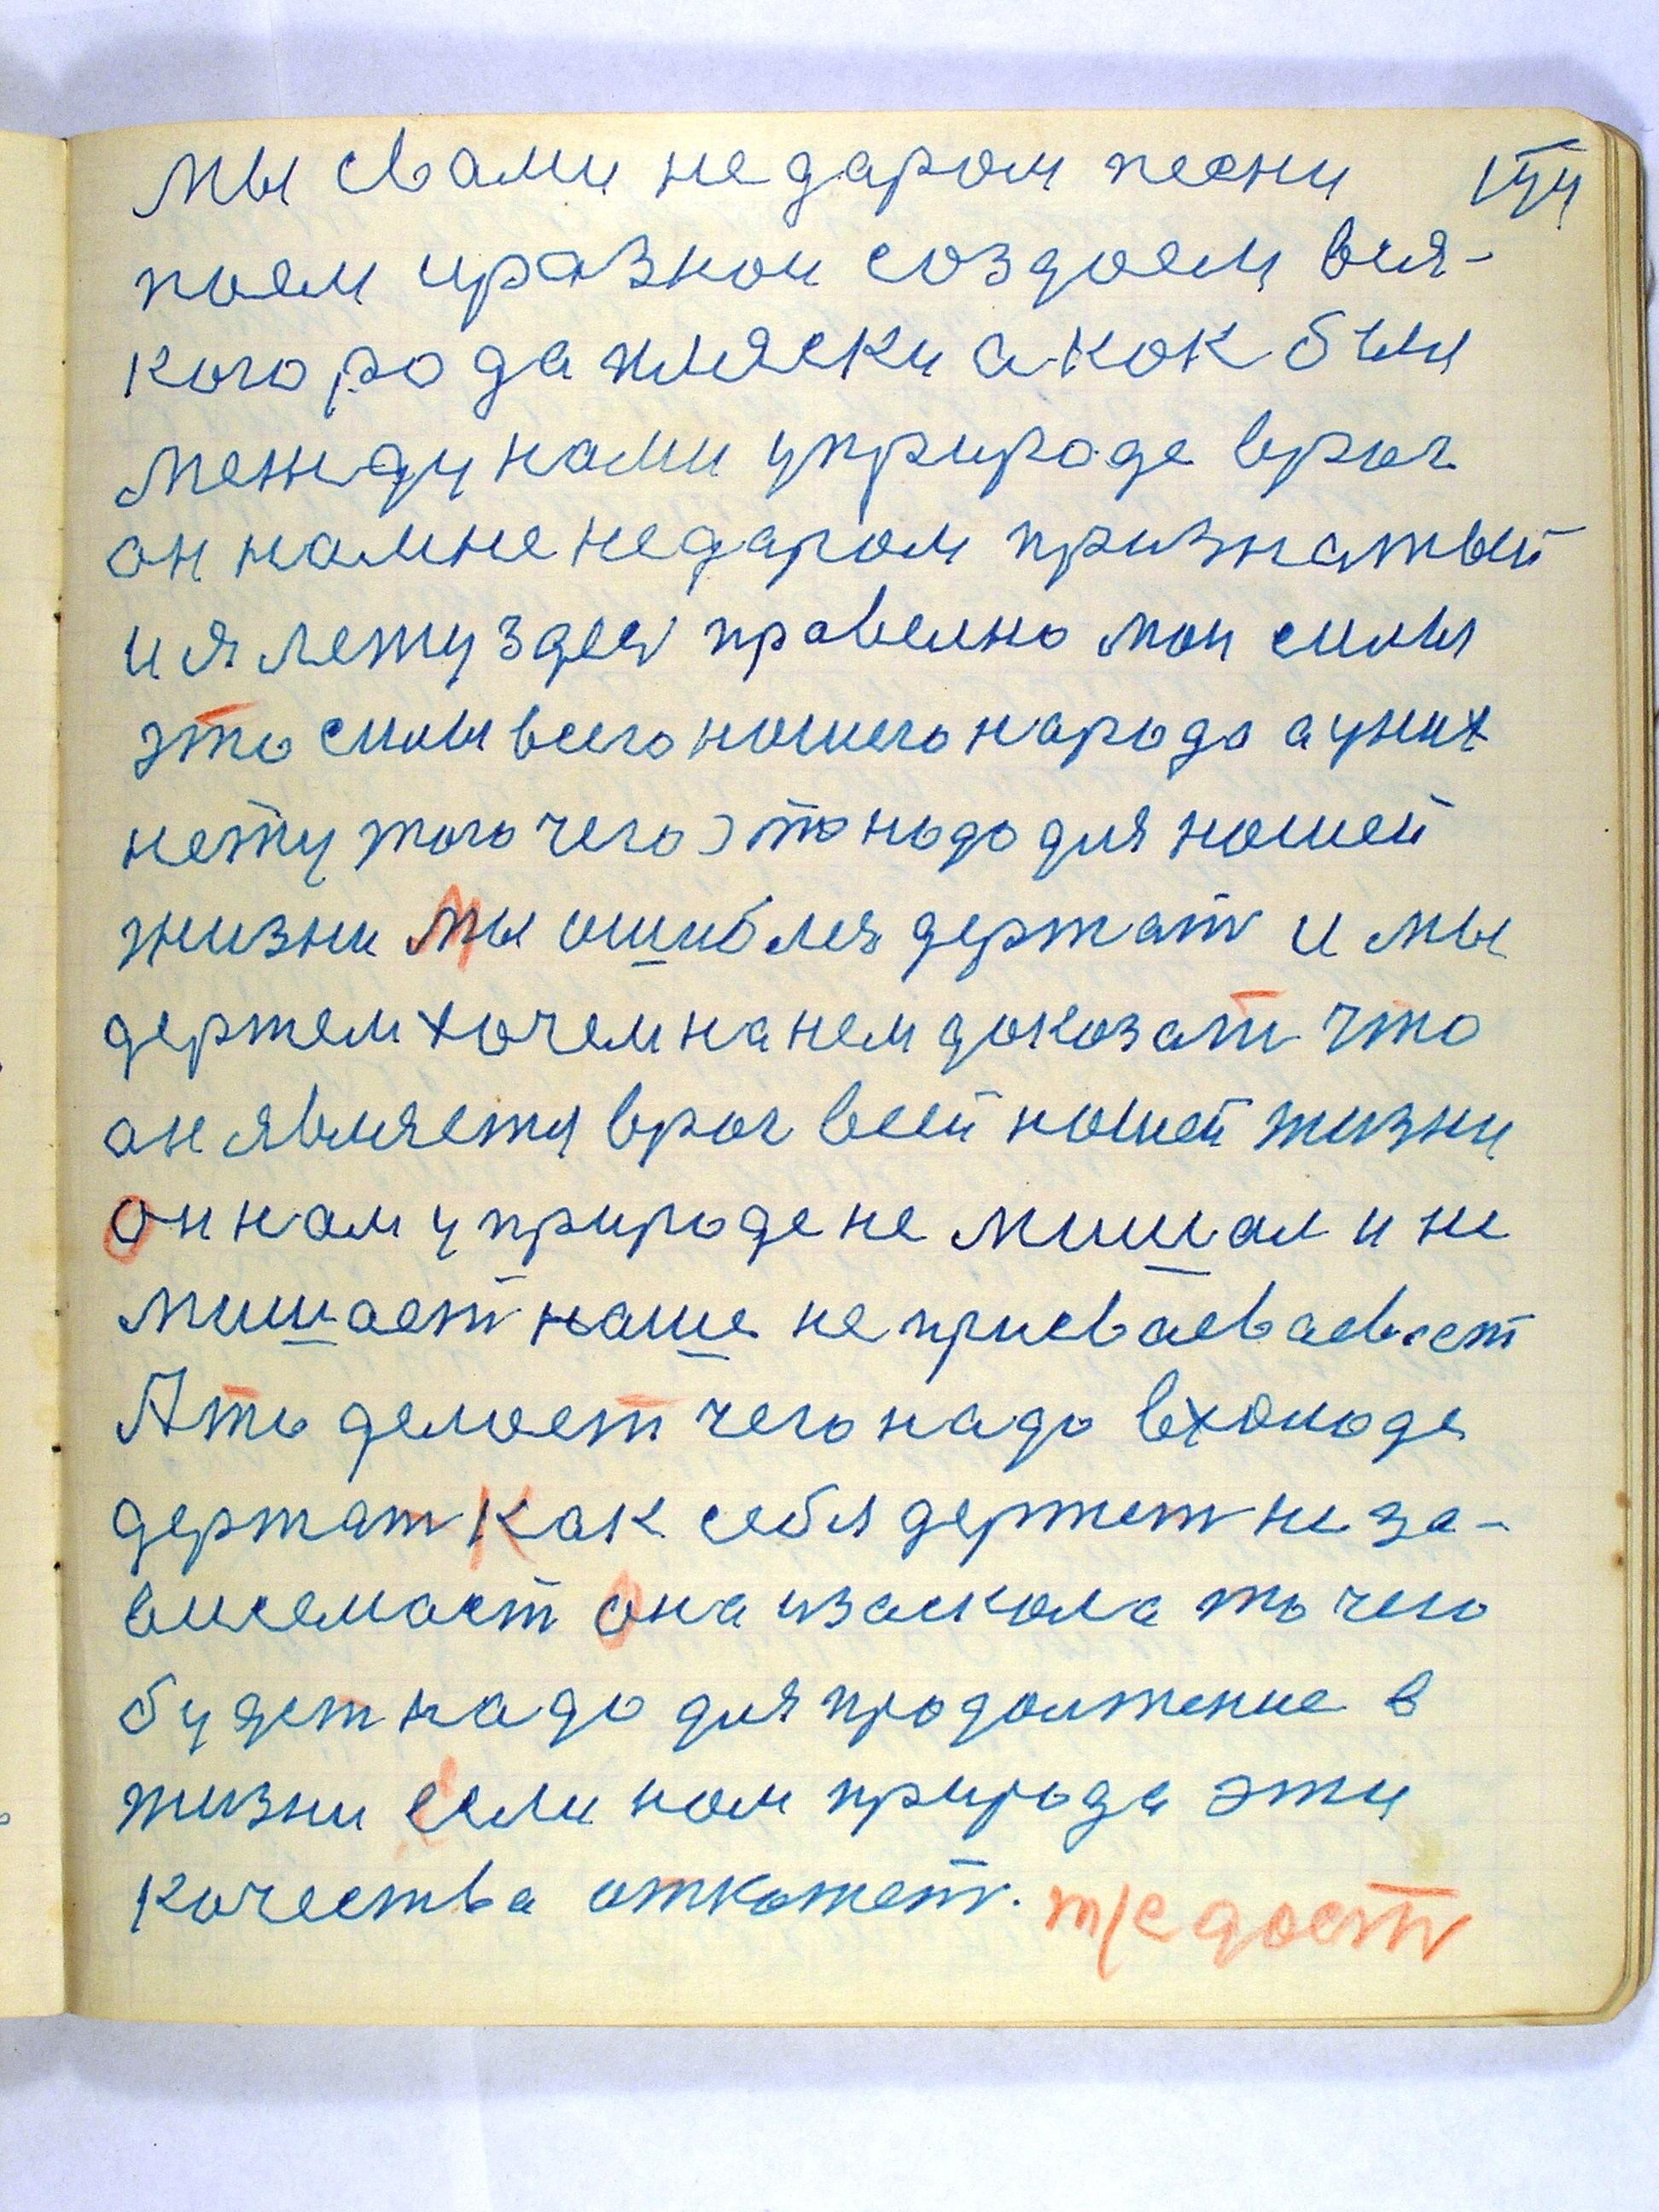 мы свами недаром песни
поем иразнои создоем вся-
кого рода пляски а кок был
между нами уприроде врог
он намненедаром признатый
и я лежу здес правелно мои силы
это силы всего ношего народо а уних
нету того чего это нодо для ношей
жизни Мы ошиблис держат и мы
держем хочем на нем докозат что
он является врог всей ношей жизни
Он нам уприроде не мишал и не
мишает наше неприсваевает
А то делоет чего надо вхолоде
держат Как себя держет неза-
висемаст Она изаскала то чего
будет надо для продолжение в
жизни если ном природа эти
кочества откожет. т/е даст